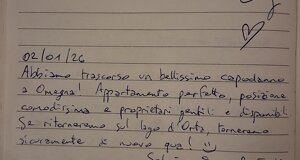 02/01/26
Abbiamo trascorso un bellissimo capodanno
a Omegna! Appartamento perfetto, posizione
comodissima e proprietari gentili e disponibili
Se ritorneremo sul lago d'Orta, torneremo
sicuramente di nuovo qua!